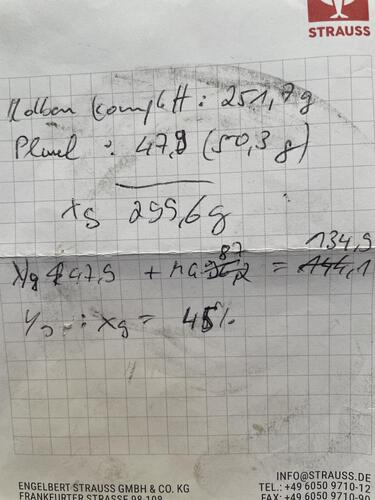 STRAUSS
Kolben komplett : 251,7g
Pleuel : 47,9 (50,3 g)
xg 299,6g
xg 47,9 + ng 87 = 134,9
144,1
yo : xg = 45%
ENGELBERT STRAUSS GMBH & CO. KG
FRANKFURTER STRASSE 98-108
INFO@STRAUSS.DE
TEL.: +49 6050 9710-12
FAX: +49 6050 9710-90